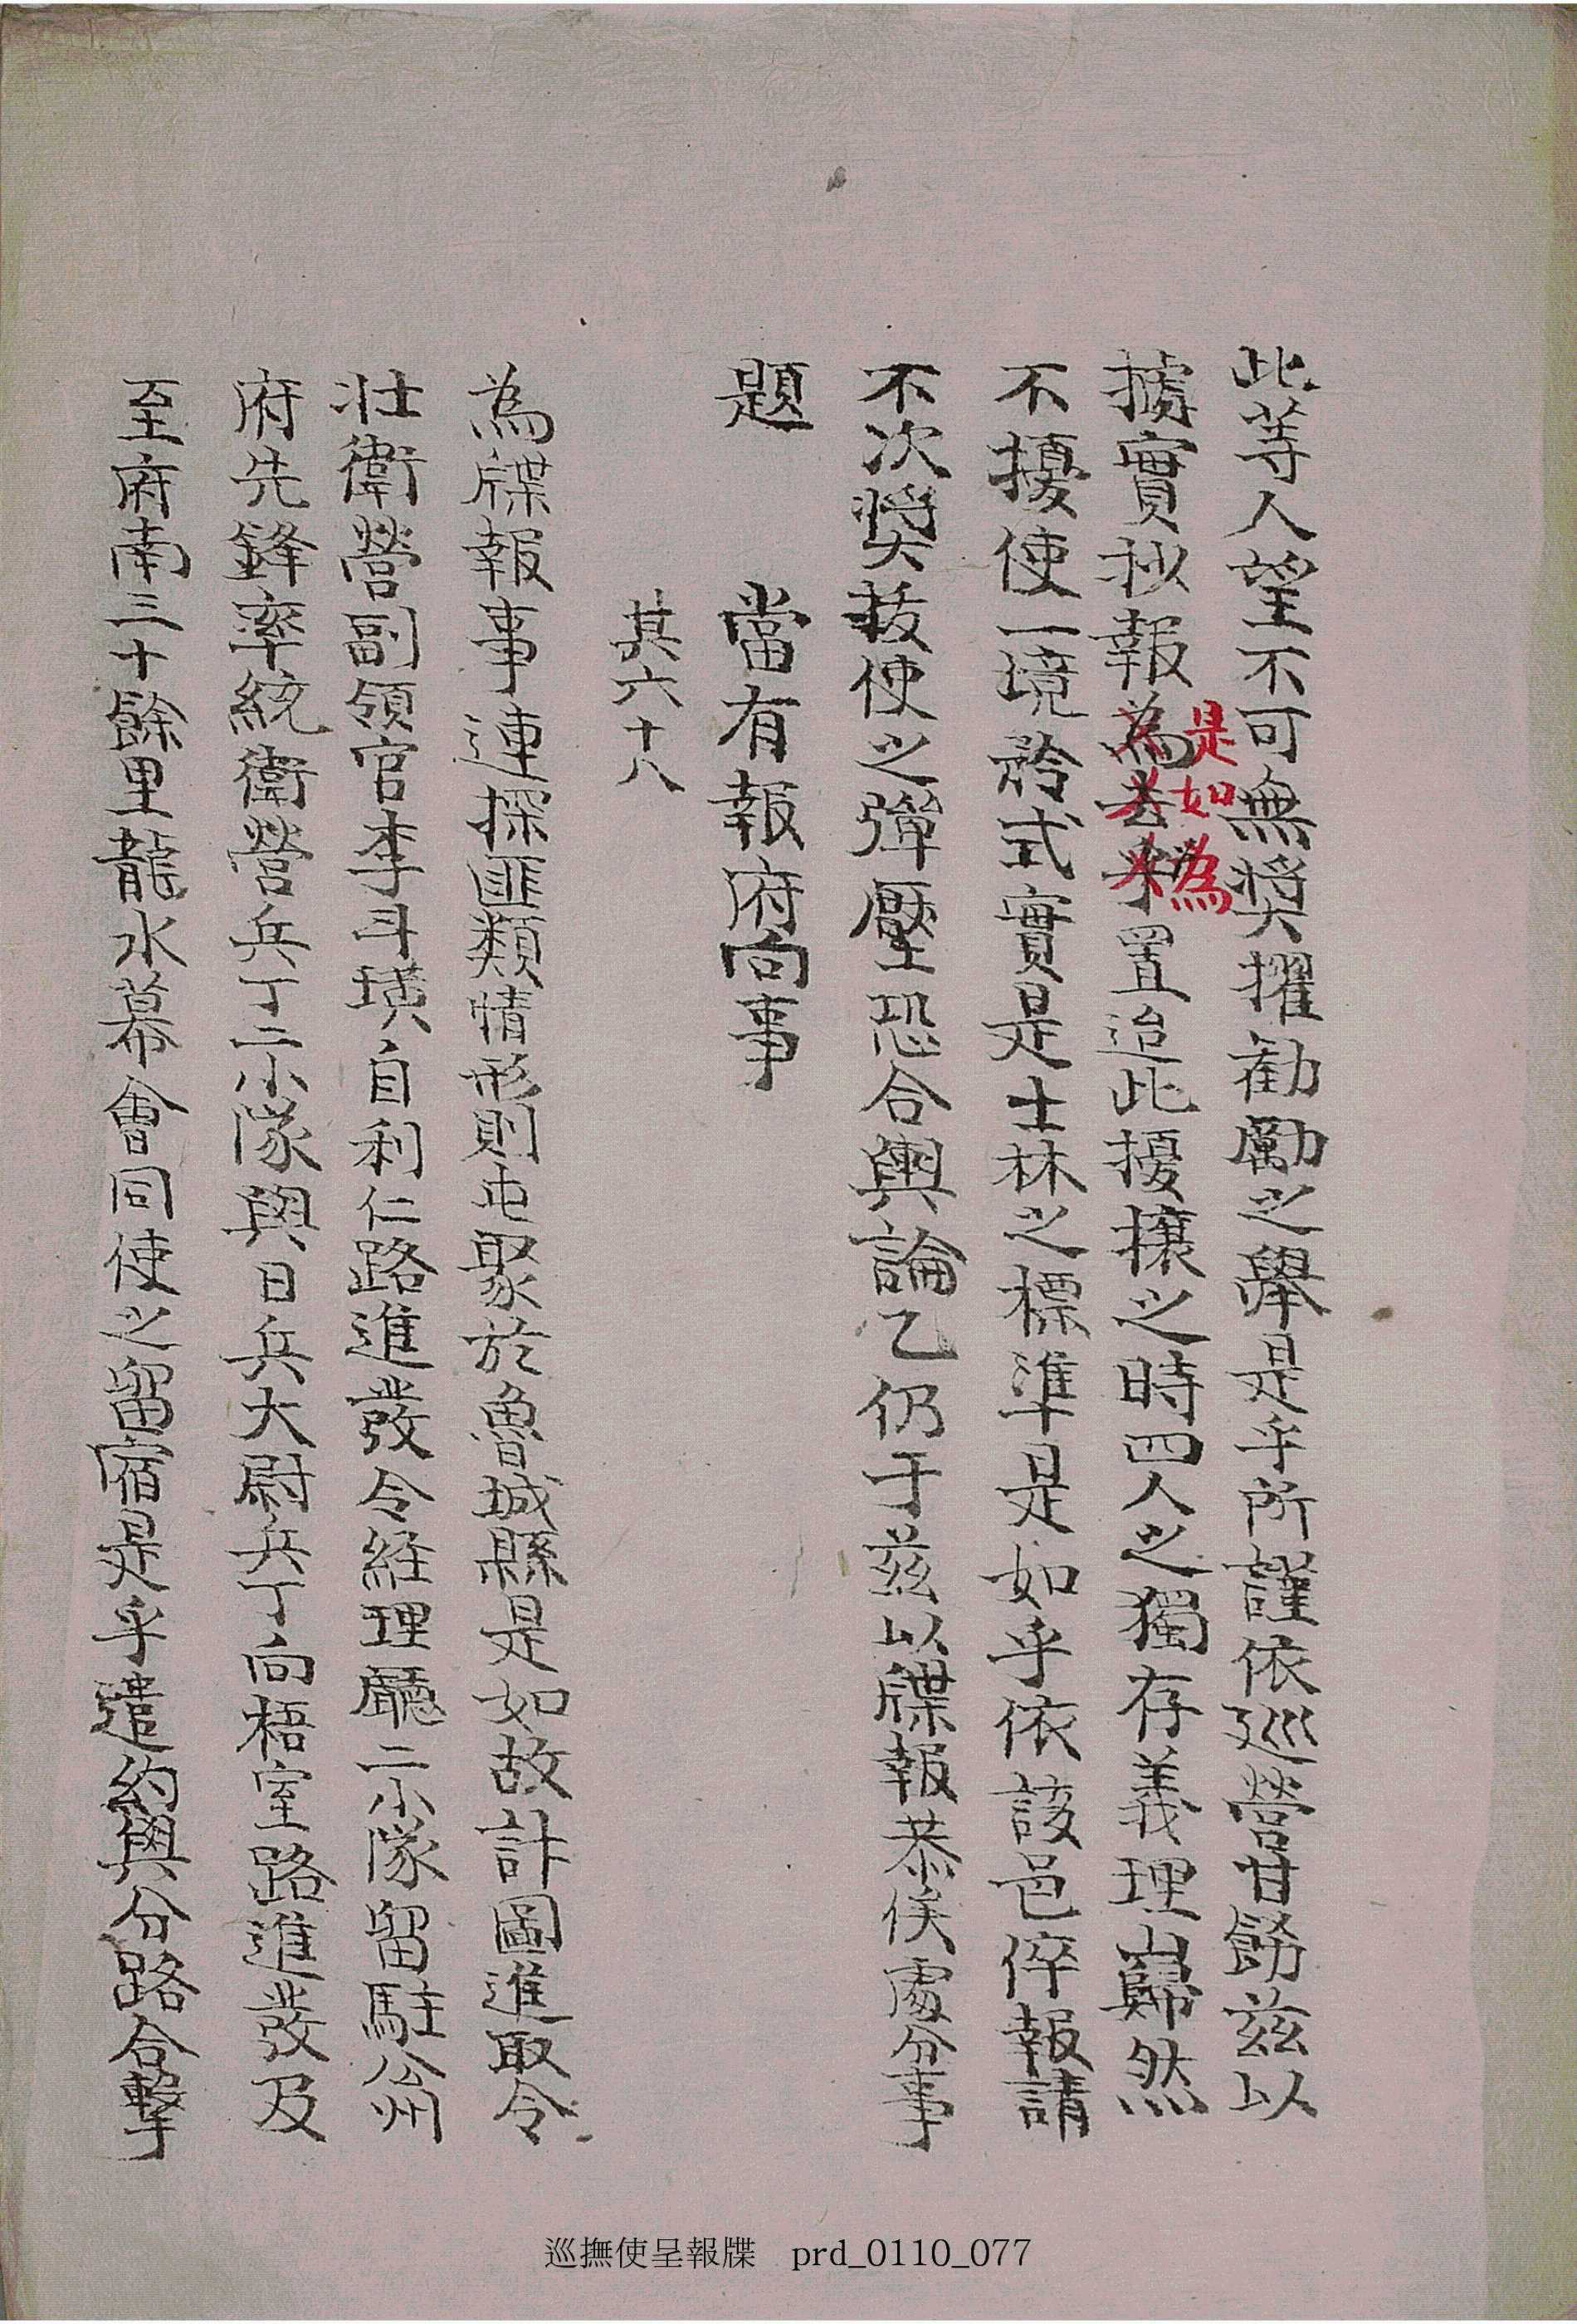 此等人望不可無奬擢勸勵之擧是乎所謹依巡營甘飭玆以
據實抄報為去乎置迨此擾攘之時四人之獨存義理巋然
是如為
不擾使一境矜式實是士林之標準是如乎依該邑倅報請
不次奬拔使之彈壓恐合輿論乙仍于玆以牒報恭俟處分事
題 當有報府向事
其六十八
為牒報事連探匪類情形則屯聚於魯城縣是如故計圖進取令
壯衛營副領官李斗璜自利仁路進發令經理廳二小隊留駐公州
府先鋒率統衛營兵丁二小隊與日兵大尉兵丁向梧室路進發及
至府南三十餘里龍水幕會同使之留宿是乎遣約與分路合擊
巡撫使呈報牒 prd_0110_077